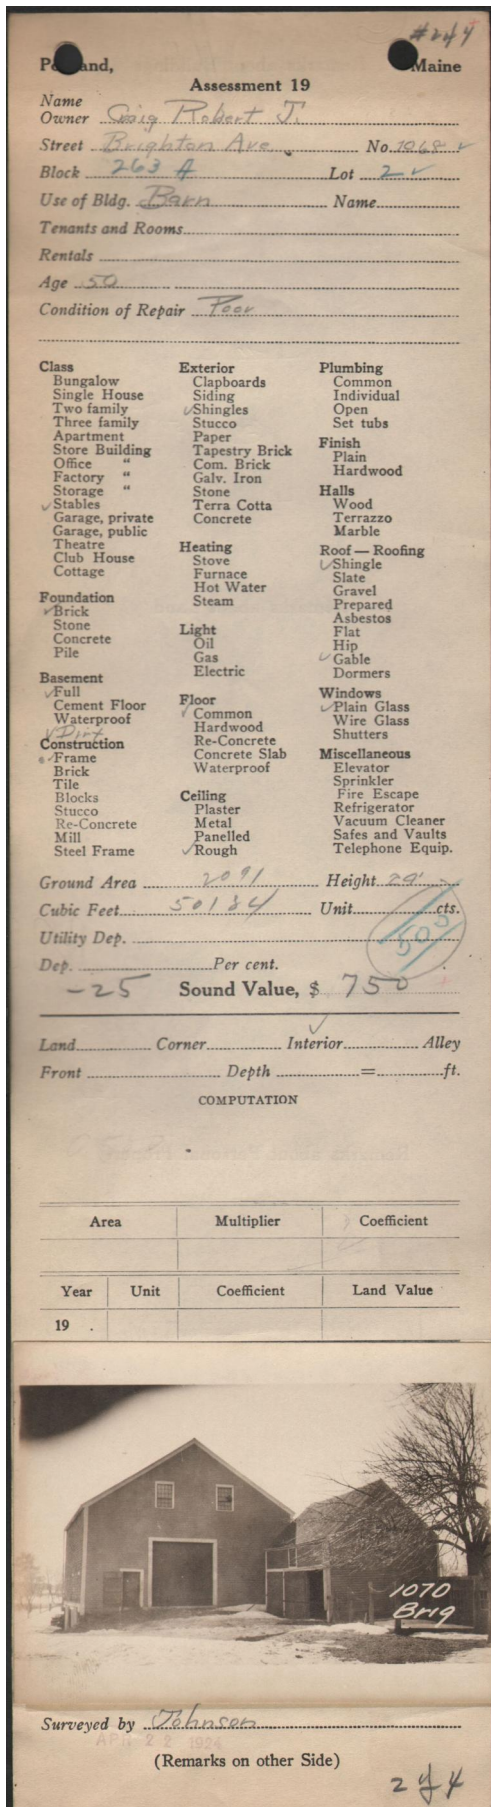 #244
Portland, Maine
Assessment 19
Name
Owner Craig Robert J.
Street Brighton Ave. No. 1068
Block 263 A Lot 2
Use of Bldg. Barn Name
Tenants and Rooms
Rentals
Age 50
Condition of Repair Poor
Class
Bungalow
Single House
Two family
Three family
Apartment
Store Building
Office "
Factory "
Storage "
✓Stables
Garage, private
Garage, public
Theatre
Club House
Cottage
Foundation
✓Brick
Stone
Concrete
Pile
Basement
✓Full
Cement Floor
Waterproof
✓Dirt
Construction
✓Frame
Brick
Tile
Blocks
Stucco
Re-Concrete
Mill
Steel Frame
Exterior
Clapboards
Siding
✓Shingles
Stucco
Paper
Tapestry Brick
Com. Brick
Galv. Iron
Stone
Terra Cotta
Concrete
Heating
Stove
Furnace
Hot Water
Steam
Light
Oil
Gas
Electric
Floor
✓Common
Hardwood
Re-Concrete
Concrete Slab
Waterproof
Ceiling
Plaster
Metal
Panelled
✓Rough
Plumbing
Common
Individual
Open
Set tubs
Finish
Plain
Hardwood
Halls
Wood
Terrazzo
Marble
Roof — Roofing
✓Shingle
Slate
Gravel
Prepared
Asbestos
Flat
Hip
✓Gable
Dormers
Windows
✓Plain Glass
Wire Glass
Shutters
Miscellaneous
Elevator
Sprinkler
Fire Escape
Refrigerator
Vacuum Cleaner
Safes and Vaults
Telephone Equip.
Ground Area 2091 Height 29'
Cubic Feet 50184 Unit cts.
500
Utility Dep.
Dep. Per cent.
-25 Sound Value, $ 750
Land Corner Interior Alley
Front Depth = ft.
COMPUTATION
Area Multiplier Coefficient
Year Unit Coefficient Land Value
19 .
1070
Brig
Surveyed by Johnson
APR 22 1924
(Remarks on other Side)
2 of 4